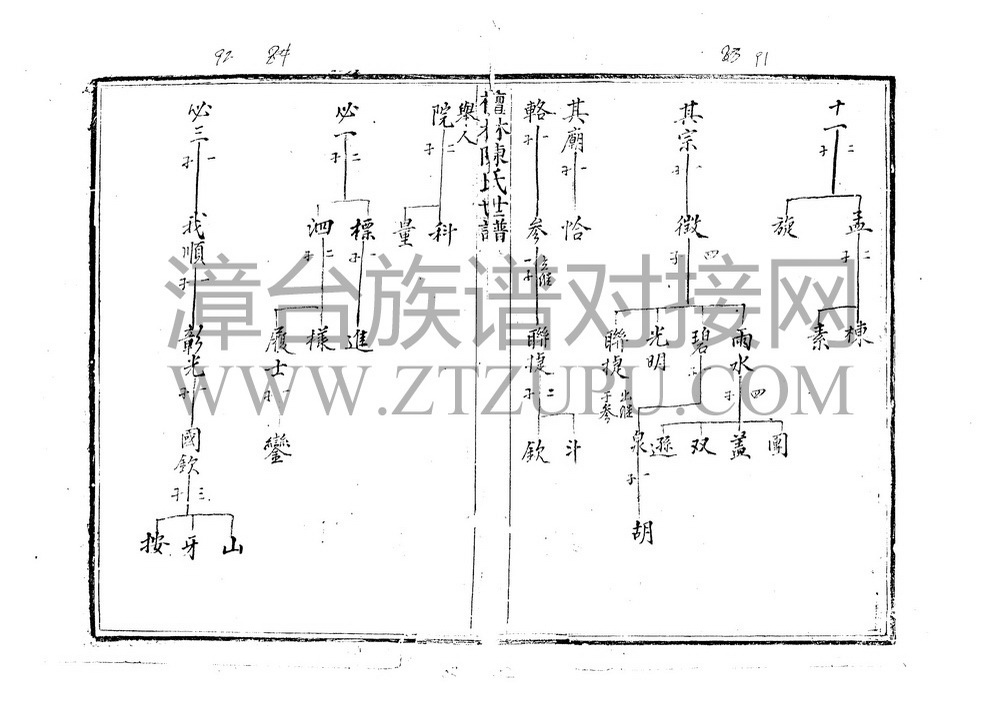 92 84
83 91
檀林陳氏世譜
十一
二子
孟 旋
二子
棟 素
其宗
一子
徵
四子
雨水 碧 光明 聯捷
四子
一子
出繼
子參
圍 盖 双 遜
泉
一子
胡
其廟
一子
恰
輅
一子
參
立繼
一子
聯捷
二子
斗 欽
舉人
院
二子
科 量
必一
二子
標 泗
一子
二子
進 樣 履士
一子
鑾
必三
一子
我順
一子
彰光
一子
國欽
三子
山 牙 按
漳台族谱对接网
WWW.ZTZUPU.COM